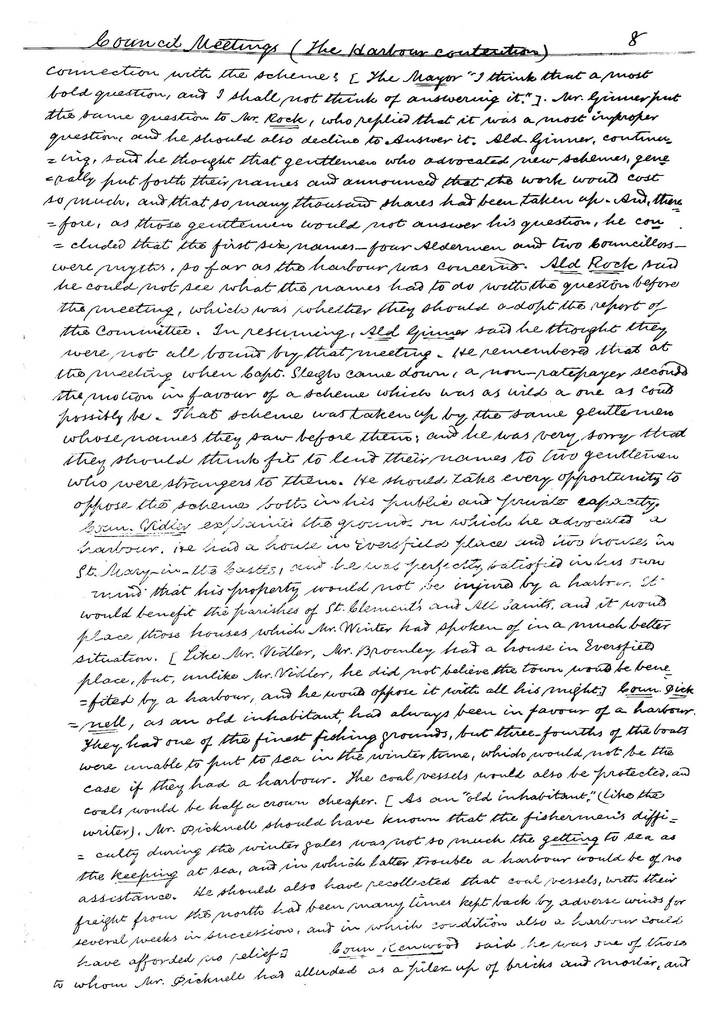 Council Meetings (The Harbour contention) 8
connection with the scheme? [The Mayor "I think that a most
bold question, and I shall not think of answering it."]. Mr. Ginner put
the same question to Mr. Rock, who replied that it was a most improper
question, and he should also decline to answer it. Ald Ginner, continu-
=ing, said he thought that gentlemen who advocated new schemes, gene
=rally put forth their names and announced that the work would cost
so much, and that so many thousand shares had been taken up. And, there
=fore, as those gentlemen would not answer his question, he con
=cluded that the first six names – four Aldermen and two Councillors –
were myths, so far as the harbour was concerned. Ald Rock said
he could not see what the names had to do with the question before
the meeting, which was whether they should adopt the report of
the Committee. In resuming, Ald Ginner said he thought they
were not all bound by that meeting. He remembered that at
the meeting when Capt. Sleigh came down, a non-ratepayer seconded
the motion in favour of a scheme which was as wild a one as could
possibly be. That scheme was taken up by the same gentlemen
whose names they saw before them; and he was very sorry that
they should think fit to lend their names to two gentlemen
who were strangers to them. He should take every opportunity to
oppose the scheme both in his public and private capacity.
Coun. Vidler explained the ground on which he advocated a
harbour. He had a house in Eversfield place and two houses in
St. Mary-in-the-Castle, and he was perfectly satisfied in his own
mind that his property would not be injured by a harbour. It
would benefit the parishes of St. Clements and All Saints, and it would
place those houses which Mr. Winter had spoken of in a much better
situation. [Like Mr. Vidler, Mr. Bromley had a house in Eversfield
place, but, unlike Mr. Vidler, he did not believe the town would be bene
=fited by a harbour, and he would oppose it with all his might.] Coun Pick
=nell, as an old inhabitant, had always been in favour of a harbour.
They had one of the finest fishing grounds, but three-fourths of the boats
were unable to put to sea in the winter time, which would not be the
case if they had a harbour. The coal vessels would also be protected, and
coals would be half a crown cheaper. [As an "old inhabitant," (like the
writer), Mr. Picknell should have known that the fishermen's diffi=
=culty during the winter gales was not so much the getting to sea as
the keeping at sea, and in which latter trouble a harbour would be of no
assistance. He should also have recollected that coal vessels, with their
freight from the north had been many times kept back by adverse winds for
several weeks in succession, and in which condition also a harbour could
have afforded no relief.] Coun Kenwood said he was one of those
to whom Mr. Picknell had alluded as a piler up of bricks and mortar, and